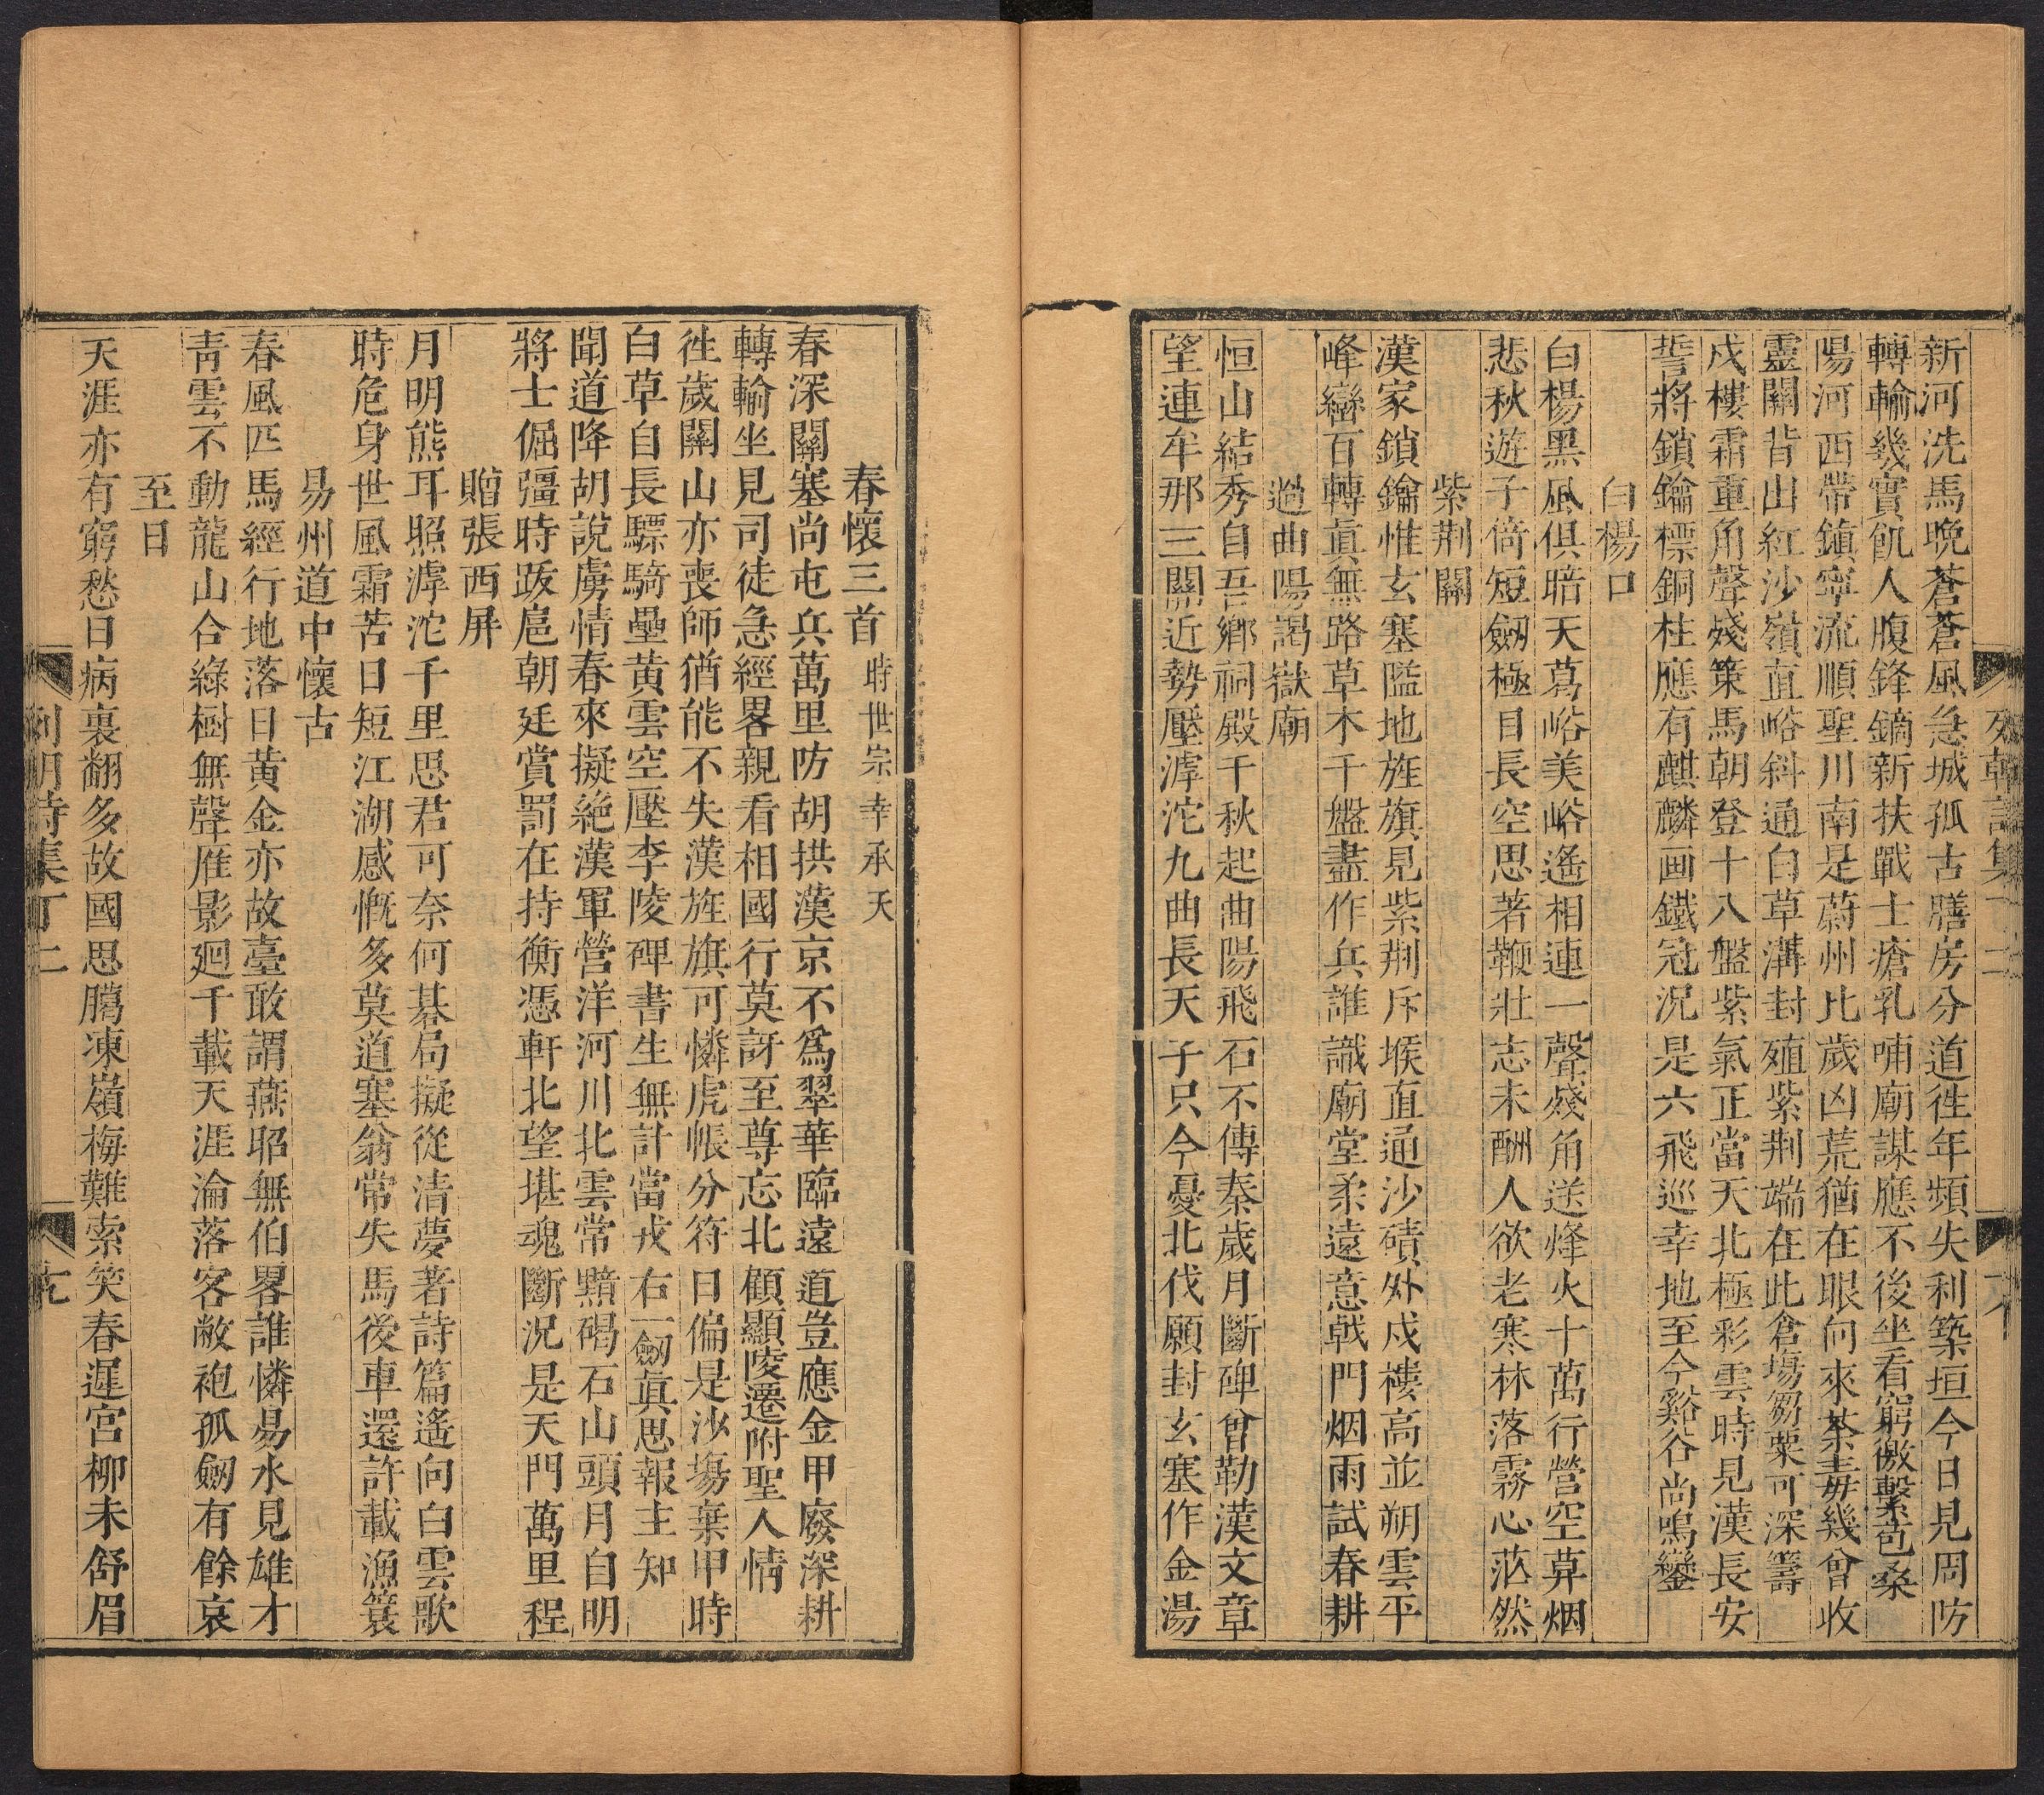 新河洗馬晚蒼蒼風急城孤古膳房分道徃年頻失利築垣今日見周防
轉輸幾實飢人腹鋒鏑新扶戰士瘡乳哺廟謀應不後坐看窮徼繫苞桑
陽河西帶鎮寧流順聖川南是蔚州比歲凶荒猶在眼何來荼毒幾曾收
靈關背山紅沙嶺直峪斜通白草溝封殖紫荆端在此倉塲芻粟可深籌
戍樓霜重角聲殘策馬朝登十八盤紫氣正當天北極彩雲時見漢長安
誓將鎖鑰標銅柱應有麒麟画鐵冠況是六飛巡幸地至今谿谷尚鳴鑾
白楊口
白楊黑風俱暗天葛峪美峪遙相連一聲殘角送烽火十萬行營空莽烟
悲秋遊子倚短劔極目長空思著鞭壯志未酬人欲老寒林落霧心茫然
紫荆關
漢家鎖鑰惟玄塞隘地旌旗見紫荆斥堠直通沙磧外戍樓高並朔雲平
峰巒百轉眞無路草木千盤盡作兵誰識廟堂柔遠意戟門烟雨試春耕
過曲陽謁嶽廟
恒山結秀自吾鄉祠殿千秋起曲陽飛石不傳秦歲月斷碑曾勒漢文章
望連牟那三關近勢壓滹沱九曲長天子只今憂北伐願封玄塞作金湯
列朝詩集丁上
春懷三首 時世宗幸承天
春深關塞尚屯兵萬里防胡拱漢京不爲翠華臨遠道豈應金甲廢深耕
轉輸坐見司徒急經畧親看相國行莫訝至尊忘北顧顯陵遷附聖人情
徃歲關山亦喪師猶能不失漢旌旗可憐虎帳分符日偏是沙塲棄甲時
白草自長驃騎壘黄雲空壓李陵碑書生無計當戎右一劔眞思報主知
聞道降胡說虜情春來擬絶漢軍營洋河川北雲常黯碣石山頭月自明
將士倔彊時跋扈朝廷賞罰在持衡憑軒北望堪魂斷況是天門萬里程
贈張西屏
月明熊耳照滹沱千里思君可奈何碁局擬從清夢著詩篇遙向白雲歌
時危身世風霜苦日短江湖感慨多莫道塞翁常失馬後車還許載漁簑
易州道中懷古
春風匹馬經行地落日黄金亦故臺敢謂燕昭無伯畧誰憐易水見雄才
靑雲不動龍山合綠樹無聲雁影廻千載天涯淪落客敝袍孤劔有餘哀
至日
天涯亦有窮愁日病裏翻多故國思臈凍嶺梅難索笑春遲宮柳未舒眉
列朝詩集丁上